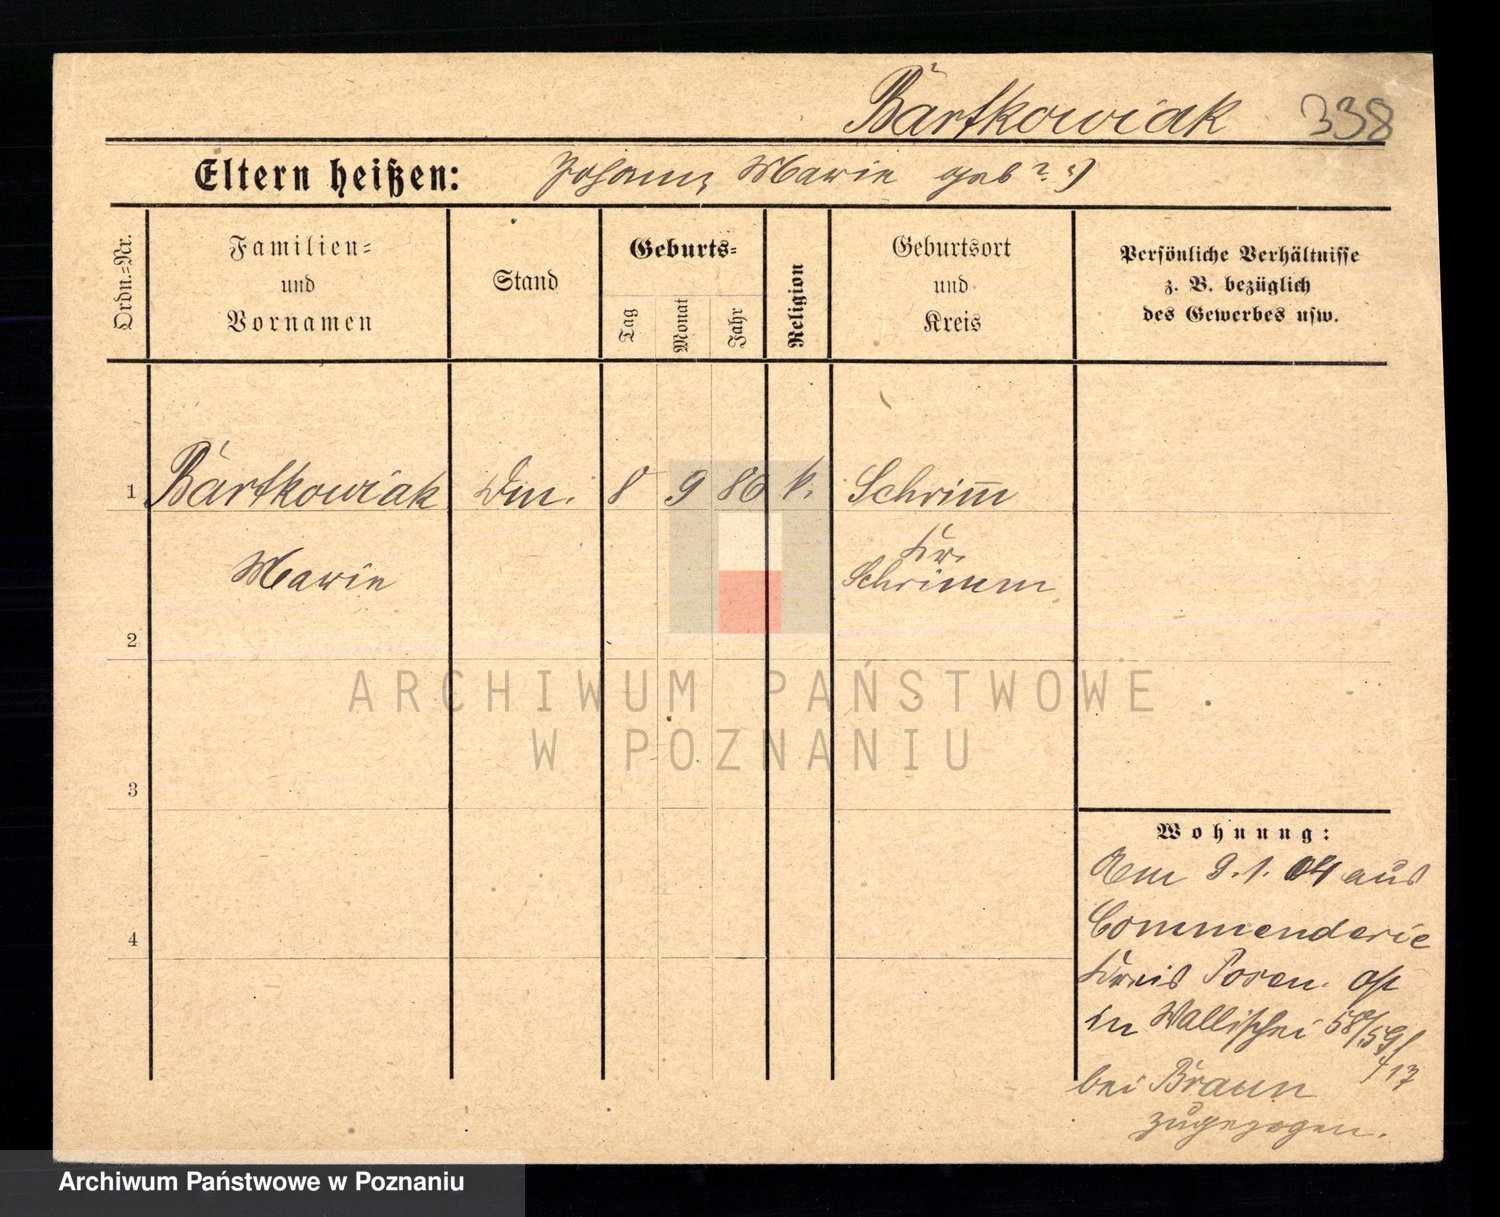 Bartkowiak 338
Eltern heißen: Johann, Marie geb ? ?)
Ordn.=Nr.
Familien=
und
Vornamen
Stand
Geburts=
Tag
Monat
Jahr
Religion
Geburtsort
und
Kreis
Persönliche Verhältnisse
z. B. bezüglich
des Gewerbes usw.
1 Bartkowiak Dm. 8 9 86 k. Schrim̅
Marie
Kr.
Schrimm
2
3
4
Wohnung:
Am 9.1.04 aus
Commenderie
Kreis Posen
in Wallischei 58/59/
bei Braun
zugezogen.
ARCHIWUM PAŃSTWOWE
W POZNANIU
Archiwum Państwowe w Poznaniu